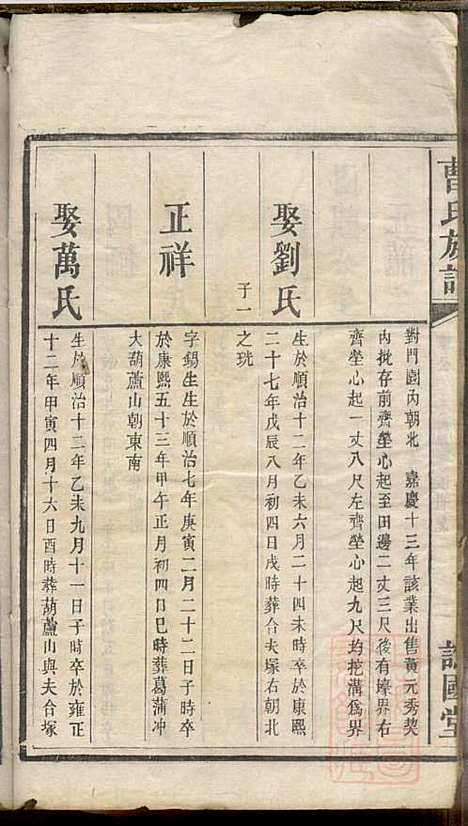 曹氏族譜
對門園內朝北　嘉慶十三年該業出售黃元秀契
內批存前齊塋心起至田邊二丈三尺後有墢界右
齊塋心起一丈八尺左齊塋心起九尺均挖溝為界
娶劉氏
生於順治十二年乙未六月二十四未時卒於康熙
二十七年戊辰八月初四日戌時葬合夫塚右朝北
子一
之珖
正祥
字錫生生於順治七年庚寅二月二十二日子時卒
於康熙五十三年甲午正月初四日巳時葬葛蒲冲
大葫蘆山朝東南
娶萬氏
生於順治十二年乙未九月十一日子時卒於雍正
十二年甲寅四月十六日酉時葬葫蘆山與夫合塚
國堂